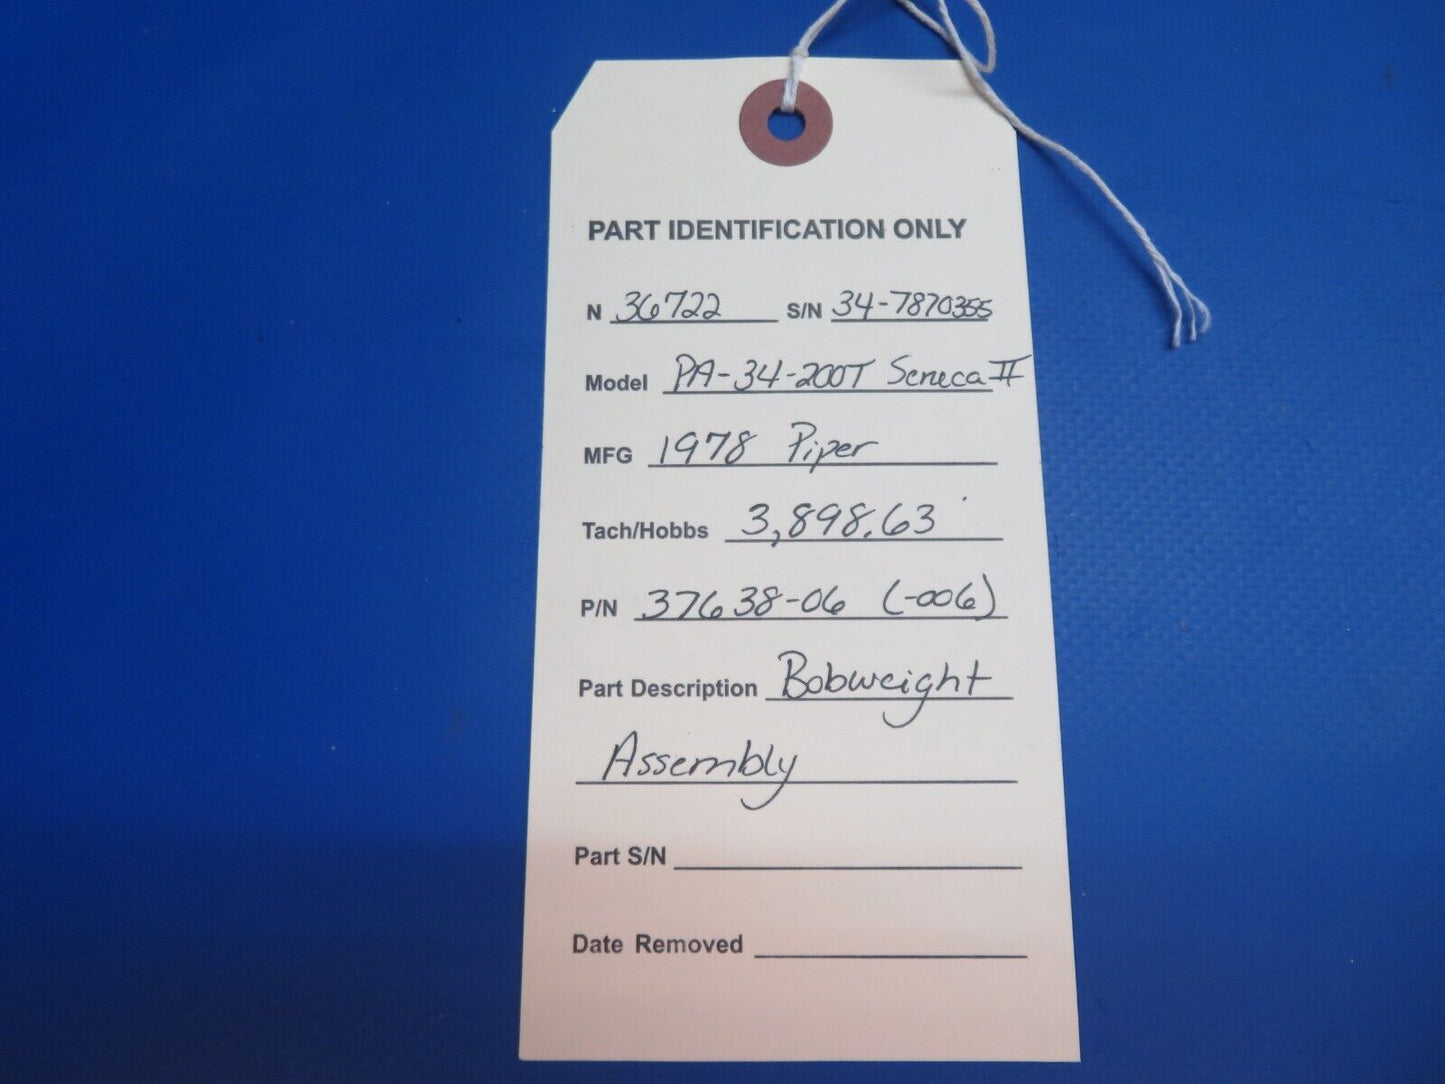 PART IDENTIFICATION ONLY
N 36722 S/N 34-7870355
Model PA-34-200T Seneca II
MFG 1978 Piper
Tach/Hobbs 3,898.63
P/N 37638-06 (-006)
Part Description Bobweight
Assembly
Part S/N
Date Removed